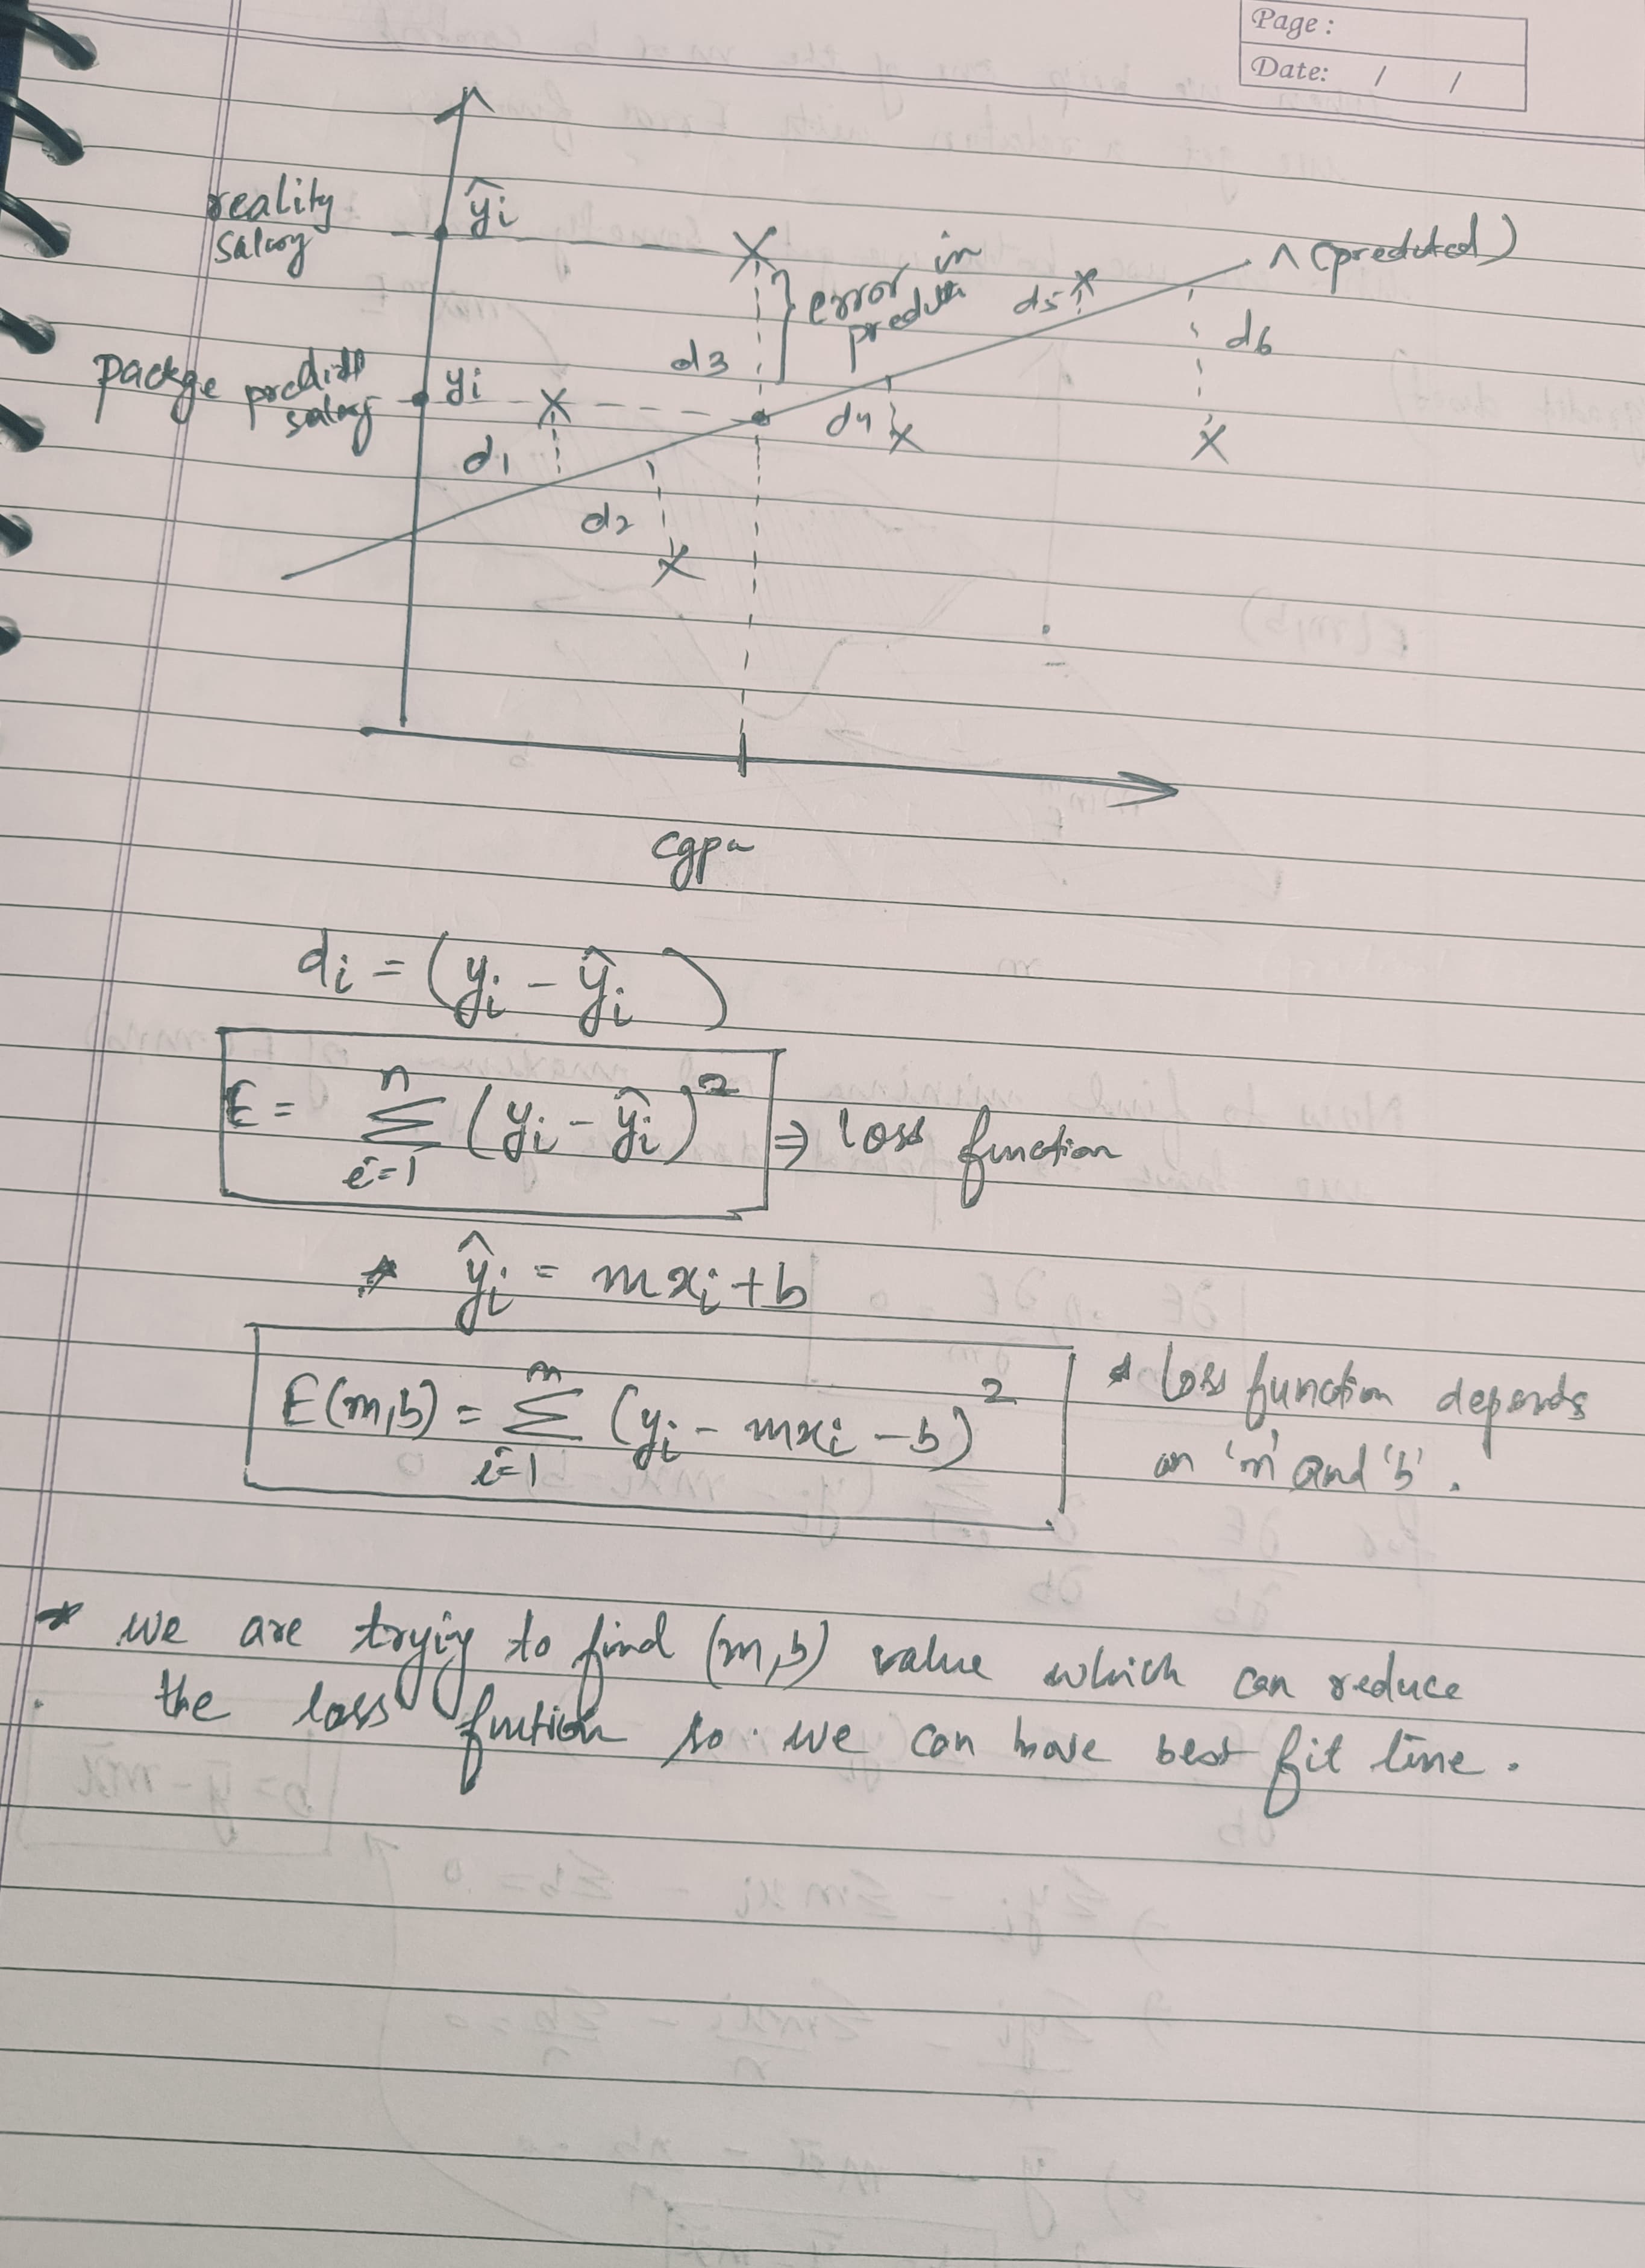 Page :
Date: / /
reality
salary
ŷi
^ (preduted)
error in
d5
d3
d6
package
yi
salary
d4
d1
d2
cgpa
di = (yi - ŷi )
E = n∑i=1 (yi - ŷi)² ⇒ loss function
* ŷi = mxi + b
E(m,b) = n∑i=1 (yi - mxi - b)²
* loss function depends
on 'm' and 'b'.
* we are trying to find (m,b) value which can reduce
the loss funtion so we can have best fit line.